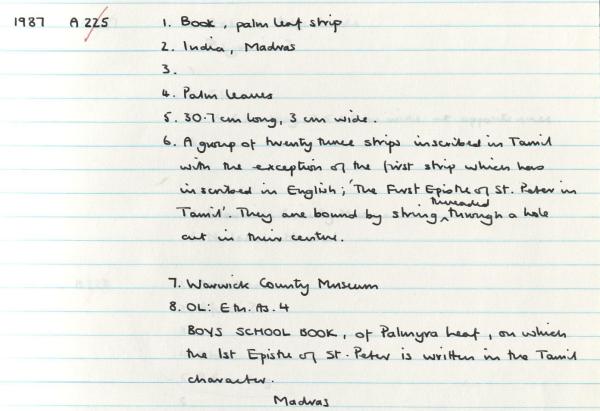 1987 A 225 1. Book, palm leaf strip
2. India, Madras
3.
4. Palm leaves
5. 30.7 cm long, 3 cm wide.
6. A group of twenty three strips inscribed in Tamil
with the exception of the first strip which has
inscribed in English; 'The First Epistle of St. Peter in
Tamil'. They are bound by string threaded through a hole
cut in their centre.
7. Warwick County Museum
8. OL: Eth. As. 4
BOYS SCHOOL BOOK, of Palmyra Leaf, on which
the 1st Epistle of St. Peter is written in the Tamil
character.
Madras